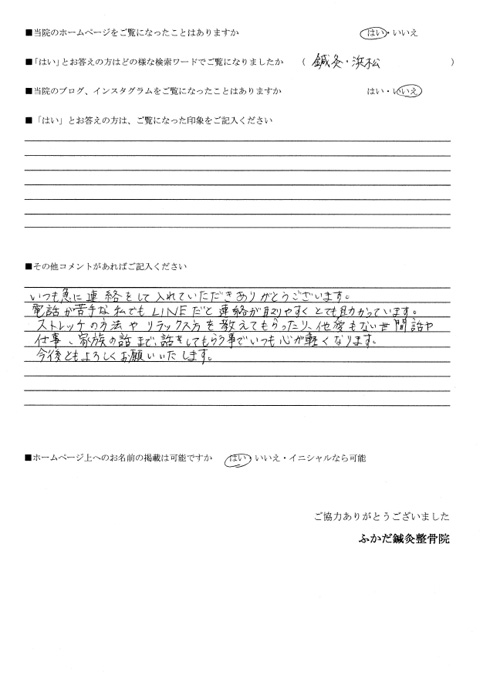 ■当院のホームページをご覧になったことはありますか はい・いいえ
■「はい」とお答えの方はどの様な検索ワードでご覧になりましたか （ 鍼灸・浜松 ）
■当院のブログ、インスタグラムをご覧になったことはありますか はい・いいえ
■「はい」とお答えの方は、ご覧になった印象をご記入ください
■その他コメントがあればご記入ください
いつも急に連絡をして入れていただきありがとうございます。
電話が苦手な私でもLINEだと連絡が取りやすくとても助かっています。
ストレッチの方法やリラックス方を教えてもらったり、他愛もない世間話や
仕事、家族の話まで、話をしてもらう事でいつも心が軽くなります。
今後ともよろしくお願いいたします。
■ホームページ上へのお名前の掲載は可能ですか はい・いいえ・イニシャルなら可能
ご協力ありがとうございました
ふかだ鍼灸整骨院